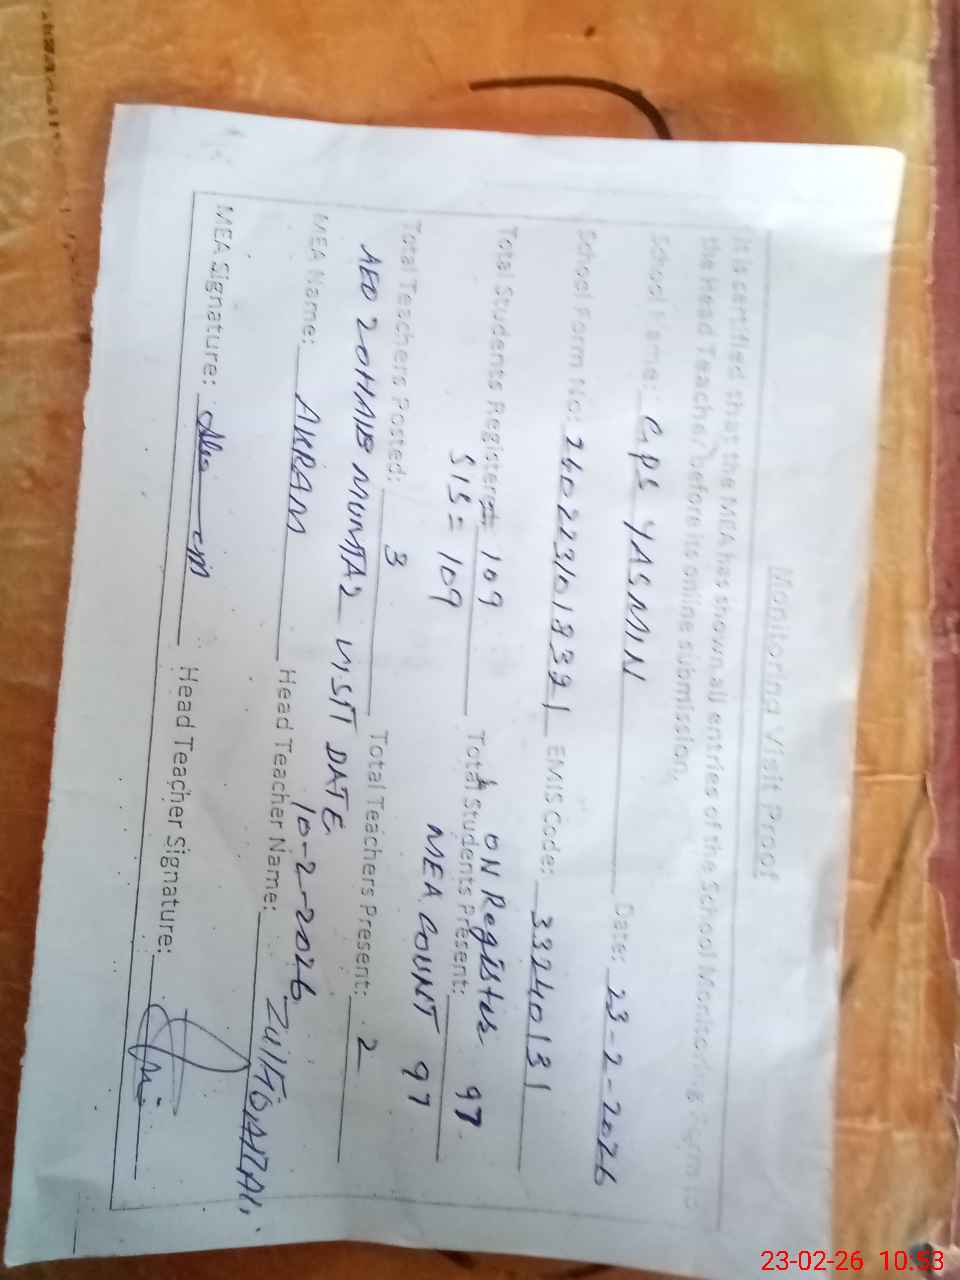 Monitoring Visit Proof
It is certified that the MEA has shown all entries of the School Monitoring Form to
the Head Teacher before its online submission.
School Name: GPS YASMIN Date: 23-2-2026
School Form No: 26022310183 21 EMIS Code: 33240131
ON Register 97
Total Students Registered: 109 Total Students Present:
SIS = 109 MEA COUNT 97
Total Teachers Posted: 3 Total Teachers Present: 2
AEO ZOHAIB MUMTAZ VISIT DATE 10-2-2026
MEA Name: AKRAM Head Teacher Name:
MEA Signature: Head Teacher Signature:
23-02-26 10:53